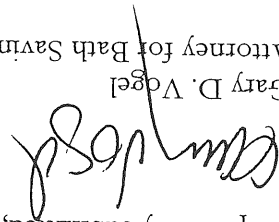 Gary D. Vogel
Attorney for Bath Savin